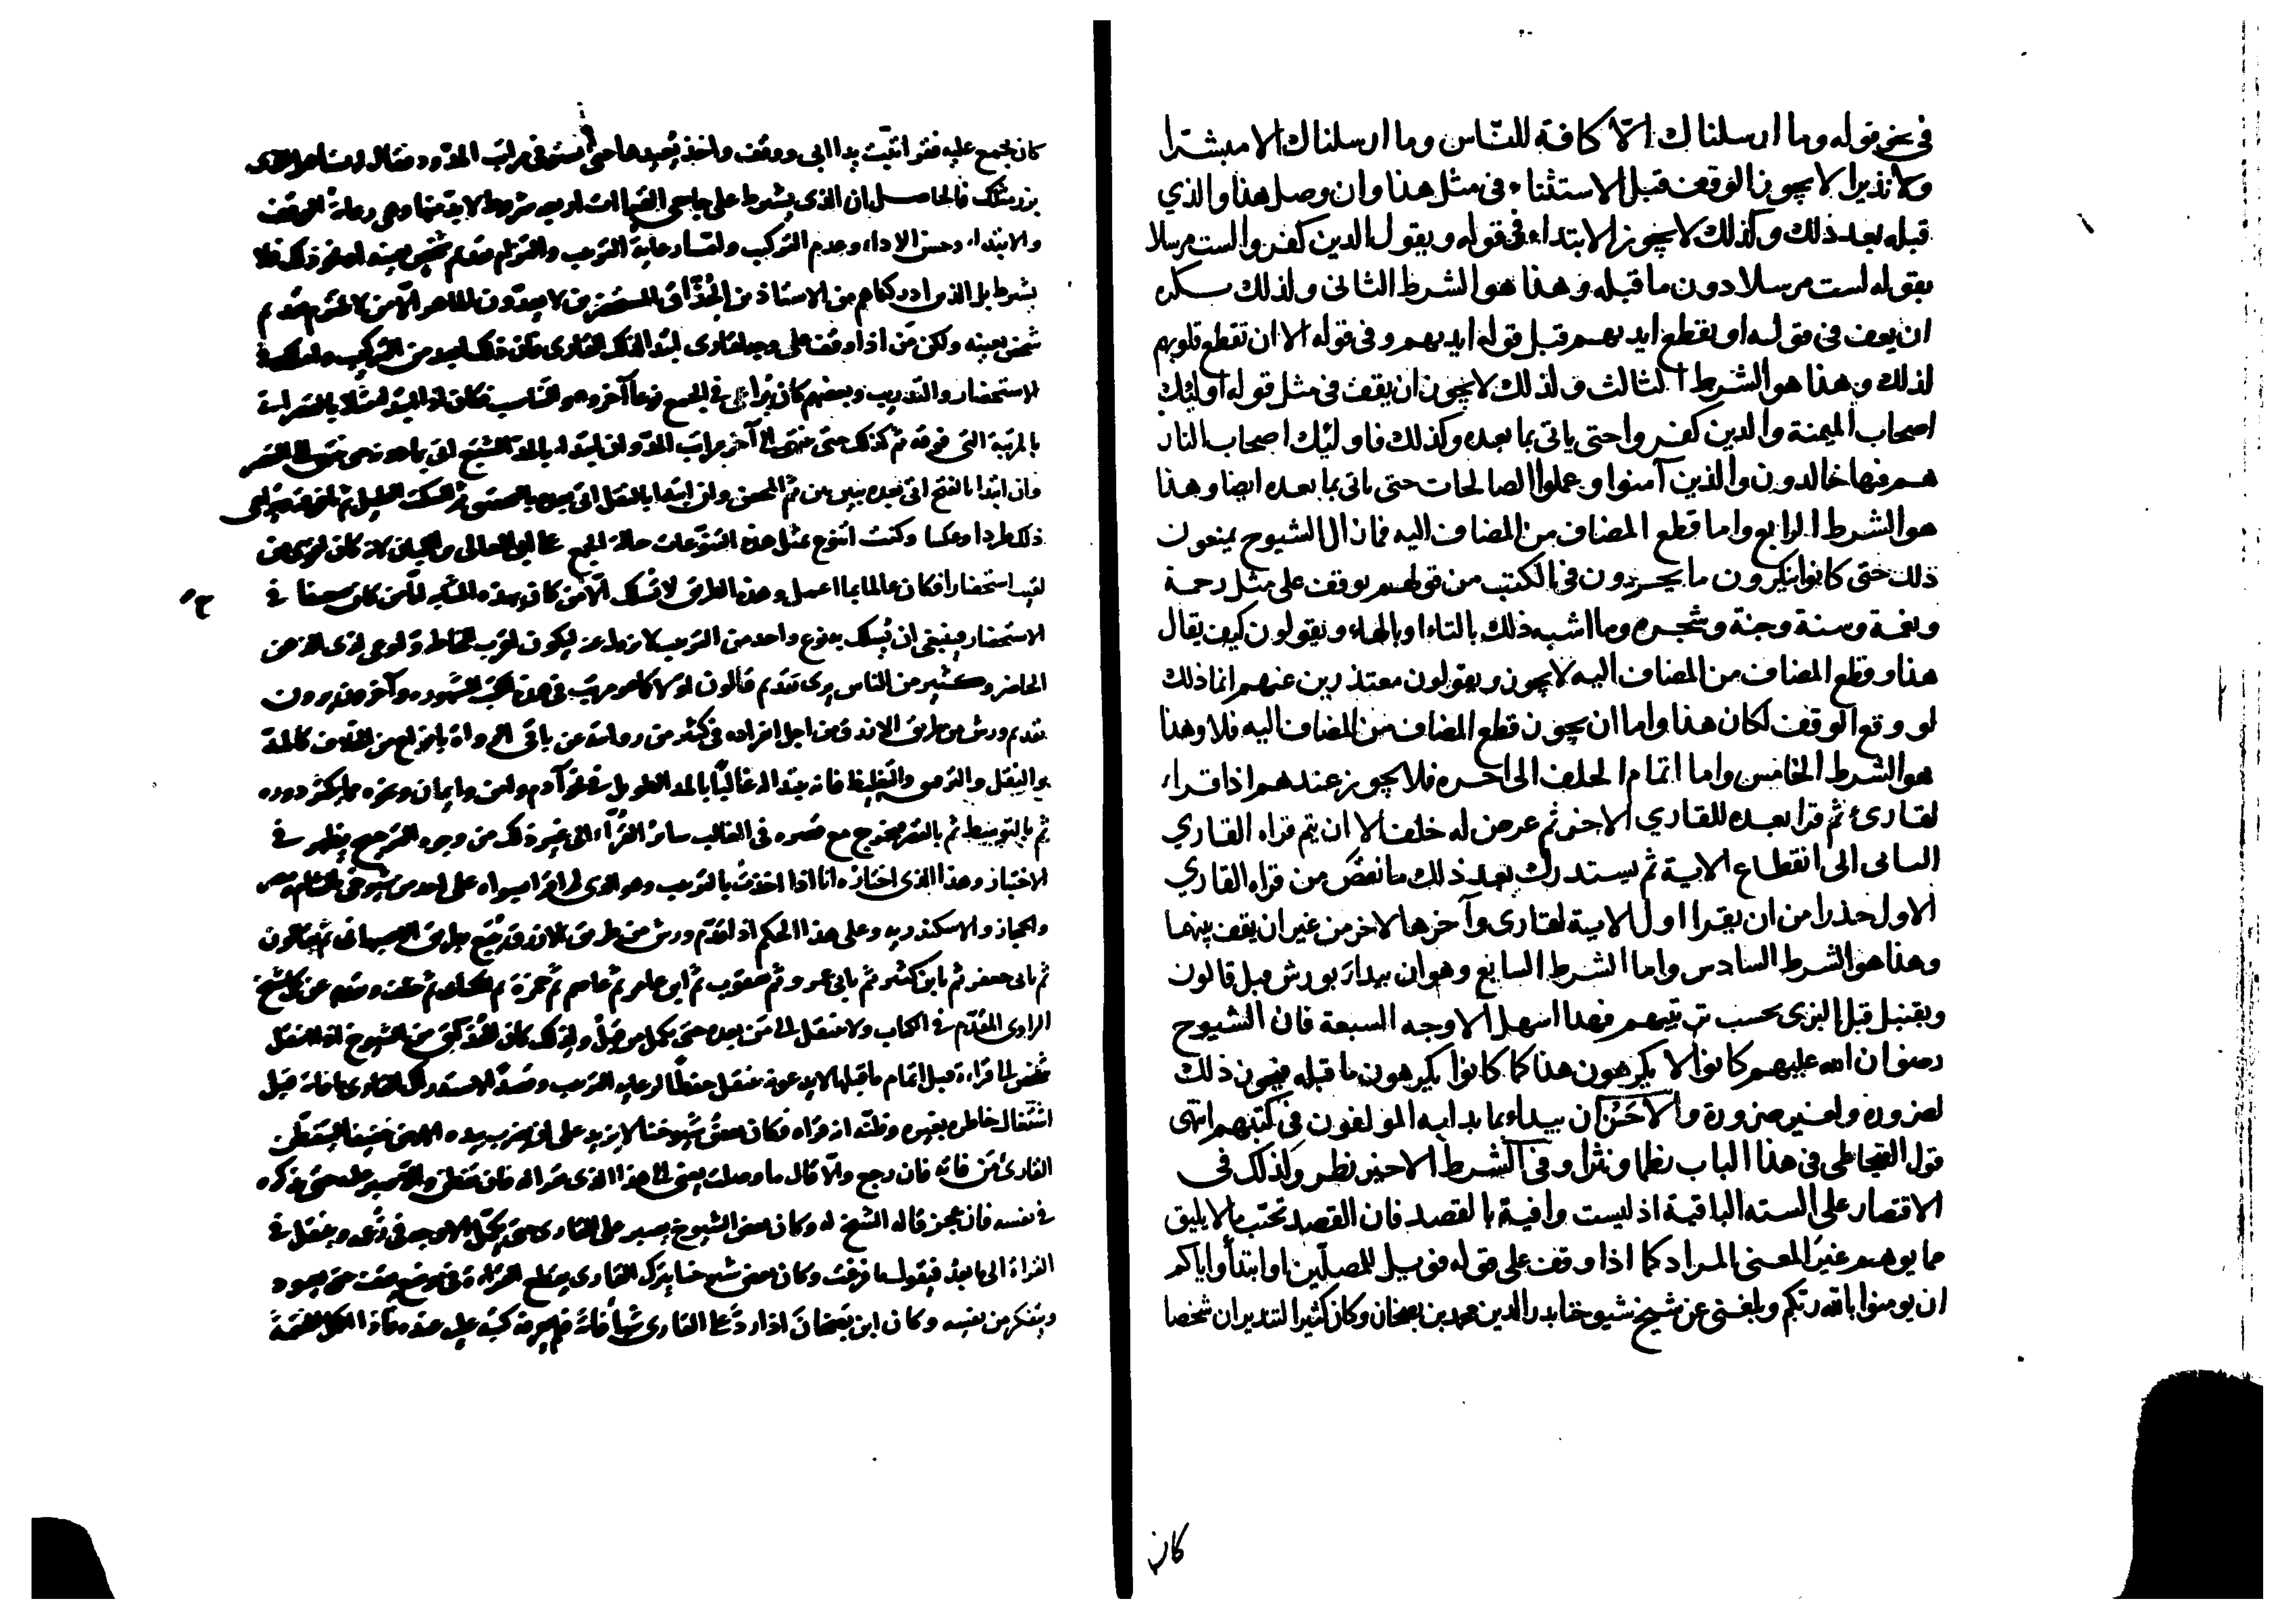 في نحو قوله وما ارسلناك الا كافة للناس وما ارسلناك الا مبشرا
ونذيرا لا يجوز الوقف قبل الاستثناء في مثل هذا وان وصل هذا والذي
قبله بعد ذلك وكذلك لا يجوز الابتداء في قوله ويقول الذين كفروا لست مرسلا
بقوله لست مرسلا دون ما قبله وهذا هو الشرط الثاني ولذلك
ان يقف في قوله او تقطع ايديهم قبل قوله ايديهم وفي قوله الا ان تقطع قلوبهم
لذلك وهذا هو الشرط الثالث ولذلك لا يجوز ان يقف في مثل قوله اوليك
اصحاب الميمنة والذين كفروا حتى ياتي بما بعده وكذلك فاوليك اصحاب النار
هم فيها خالدون والذين آمنوا وعملوا الصالحات حتى ياتي بما بعده ايضا وهذا
هو الشرط الرابع واما قطع المضاف من المضاف اليه فان الشيوح يمنعون
ذلك حتى كانوا ينكرون ما يجدون في الكتب من قولهم يوقف على مثل رحمة
ونعمة وسنة وجنة وشجره وما اشبه ذلك بالتاء او بالهاء ويقولون كيف يقال
هذا وقطع المضاف من المضاف اليه لا يجوز ويقولون معتذرين عنهم انما ذلك
لو وقع الوقف لكان هذا واما ان يجوز قطع المضاف من المضاف اليه فلا وهذا
هو الشرط الخامس واما اتمام الخلف الى اخره فلا يجوز عندهم اذا قراء
لقارئ ثم قرا بعده للقاري الاخر ثم عرض له خلف الا ان يتم قراه القاري
الثانى الى انقطاع الاية ثم يستدرك بعد ذلك ما نقص من قراه القاري
الاول حذرا من ان يقرا اول الاية لقارى وآخرها لاخر من غير ان يقف بينهما
وهذا هو الشرط السادس واما الشرط السابع وهو ان يبدا بورش قبل قالون
وبقنبل قبل البزى بحسب ترتيبهم فهذا اسهل الاوجه السبعة فان الشيوح
رضوان الله عليهم كانوا لا يكرهون هذا كما كانوا يكرهون ما قبله فيجوز ذلك
لضروره ولغير ضرورة والاحسن ان يبداء بما بدا به المولفون في كتبهم انتهى
قول القيجاطي في هذا الباب نظما ونثرا وفي الشرط الاخير نظر وكذلك في
الاقتصار على السته الباقية اذ ليست وافية بالقصد فان القصد تجنب ما لا يليق
مما يوهم غير المعنى المراد كما اذا وقف على قوله فويل للمصلين او ابتدأ واياكم
ان يومنوا بالله ربكم وبلغني عن شيخ شيوخنا بدر الدين محمد بن بصخان وكان كثير التندير ان شخصا
كان
كان يجمع عليه فقرا تبت يدا ابي ووقف واخذ يعيدها حتى يستوفي مراتب المد فقال له
فالحاصل ان الذي يشترط على جامعي القراات اربعه شروط لا بد منها وهي رعاية الوقف
والابتداء وحسن الاداء وعدم التركيب واما رعاية الترتيب والتزام تقديم شخص بعينه او غير ذلك فلا
يشترط بل الذين ادركناهم من الاستاذين الحذاق المستحضرين لا يعدون الماهر الا من لا يلتزم تقديم
شخص بعينه ولكن من اذا وقف على وجه لقارى ابتدا لذلك القارى فان ذلك ابعد من التركيب واملك في
الاستحضار والتدريب وبعضهم كان يراعي في الجمع نوعا آخر وهو التناسب فكان اذا ابتدا مثلا بالقصر اتى
بالمرتبة التي فوقه ثم كذلك حتى ينتهي الى آخر مراتب المد وان ابتدا بالمد المشبع اتى بما دونه حتى ينتهي الى القصر
وان ابتدا بالفتح اتى بعده ببين بين ثم المحض وان ابتدا بالنقل اتى بعده بالتحقيق ثم السكت القليل ثم ما فوقه ويراعى
ذلك طردا وعكسا وكنت اتنوع بمثل هذه التنوعات حالة الجمع على ابي المعالي بن اللبان لانه كان اقوى من
لقيت استحضارا فكان عالما بما اعمل وهذه الطريق لا تسلك الا من كان بهذه المثابه اما من كان ضعيفا في
الاستحضار فينبغي ان يسلك به نوع واحد من الترتيب لا يزول عنه ليكون اقرب للخاطر واوعى لذى الذهن
الحاضر وكثير من الناس يرى تقديم قالون اولا كما هو مرتب في هذه الكتب المشهوره وآخرون يرون
تقديم ورش من طريق الازرق من اجل انفراده في كثير من رواياته عن باقي الرواة بانواع من الخلاف كالمد
والنقل والترقيق والتغليظ فانه يبتدا له غالبا بالمد الطويل في نحو آدم وامن وايمان ونحوه مما يكثر دوره
ثم بالتوسط ثم بالقصر فيخرج مع قصره في الغالب سائر القراء الى غير ذلك من وجوه الترجيح يظهر في
الاختبار وهذا الذي اختاره انا اذا اخذت بالترتيب وهو الذي لم اقرا بسواه على احد من شيوخي بالشام ومصر
والحجاز والاسكندريه وعلى هذا الحكم اذا قدم ورش من طريق الازرق يتبع بطريق الاصبهاني ثم بقالون
ثم بابي جعفر ثم بابن كثير ثم بابي عمرو ثم يعقوب ثم ابن عامر ثم عاصم ثم حمزة ثم الكسائي ثم خلف ويقدم عن كل شيخ
الراوي المقدم في الكتاب ولا ينتقل الى من بعده حتى يكمل من قبل ولذلك كان الحذاق من الشيوخ اذا انتقل
شخص الى قراءة قبل اتمام ما قبلها لا يدعونه ينتقل حفظا لرعاية الترتيب وقصدا لاستدراك القارى ما فاته قبل
اشتغال خاطره بغيره وظنه انه قراه فكان بعض شيوخنا لا يزيد على ان يضرب بيده الارض خفيفا ليتفطن
القارئ من فاته فان رجع والا قال ما وصلت يعني الى هذا الذي تقرا له فان تفطن والا صبر عليه حتى يذكره
في نفسه فان عجز قاله الشيخ له وكان بعض الشيوخ يصبر على القارى حتى يكمل الاوجه في زعمه وينتقل في
القراة الى ما بعد فيقول ما فرغت وكان بعض شيوخنا يترك القارى يقطع القراءة في موضع يقف حتى يعود
ويتفكر من نفسه وكان ابن بصخان اذا رد على القارى شيا فاته فلم يعرفه كتبه عليه عنده فاذا اكمل الختمة